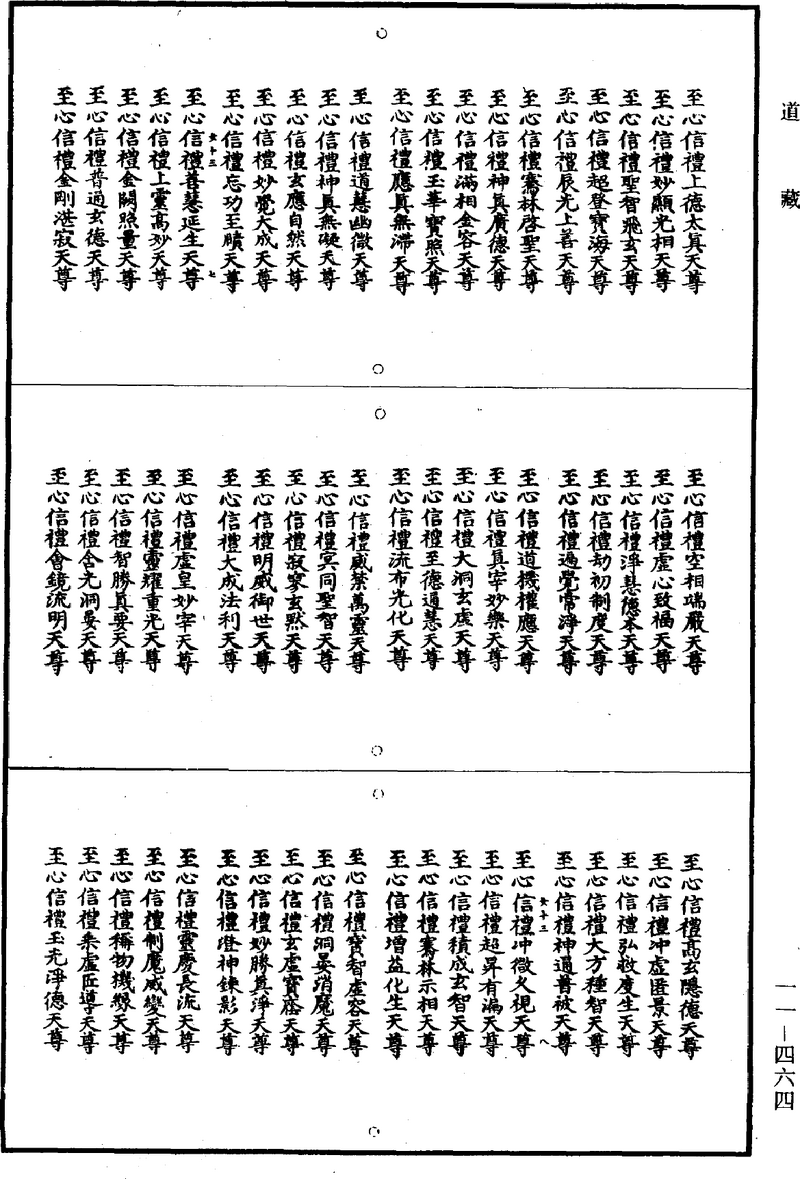 道藏
至心信禮上德太真天尊
至心信禮妙顯光相天尊
至心信禮聖智飛玄天尊
至心信禮超登寶海天尊
至心信禮辰光上善天尊
至心信禮騫林啓聖天尊
至心信禮神真廣德天尊
至心信禮滿相金容天尊
至心信禮玉華寶照天尊
至心信禮應真無滯天尊
至心信禮道慧幽微天尊
至心信禮神真無礙天尊
至心信禮玄應自然天尊
至心信禮妙覺大成天尊
至心信禮忘功至賾天尊
十三
七
至心信禮善慧延生天尊
至心信禮上靈高妙天尊
至心信禮金闕照量天尊
至心信禮普通玄德天尊
至心信禮金剛湛寂天尊
至心信禮空相端嚴天尊
至心信禮虛心致福天尊
至心信禮淨慧德本天尊
至心信禮劫初制度天尊
至心信禮遍覺常淨天尊
至心信禮道機權應天尊
至心信禮真宰妙樂天尊
至心信禮大洞玄虛天尊
至心信禮至德通慧天尊
至心信禮流布光化天尊
至心信禮威禁萬靈天尊
至心信禮冥同聖智天尊
至心信禮寂寥玄默天尊
至心信禮明威御世天尊
至心信禮大成法利天尊
至心信禮虛皇妙宰天尊
至心信禮靈耀重光天尊
至心信禮智勝真要天尊
至心信禮含光洞晏天尊
至心信禮會鏡流明天尊
至心信禮高玄隱德天尊
至心信禮沖虛匿景天尊
至心信禮弘救度生天尊
至心信禮大方種智天尊
至心信禮神通普被天尊
十三
八
至心信禮沖微久視天尊
至心信禮超昇有漏天尊
至心信禮積成玄智天尊
至心信禮騫林示相天尊
至心信禮增益化生天尊
至心信禮寶智虛容天尊
至心信禮洞晏消魔天尊
至心信禮玄虛寶天尊
至心信禮妙勝真淨天尊
至心信禮澄神鍊影天尊
至心信禮靈慶長流天尊
至心信禮制魔威變天尊
至心信禮稱物機緣天尊
至心信禮乘虛匠導天尊
至心信禮玉光淨德天尊
一一—四六四